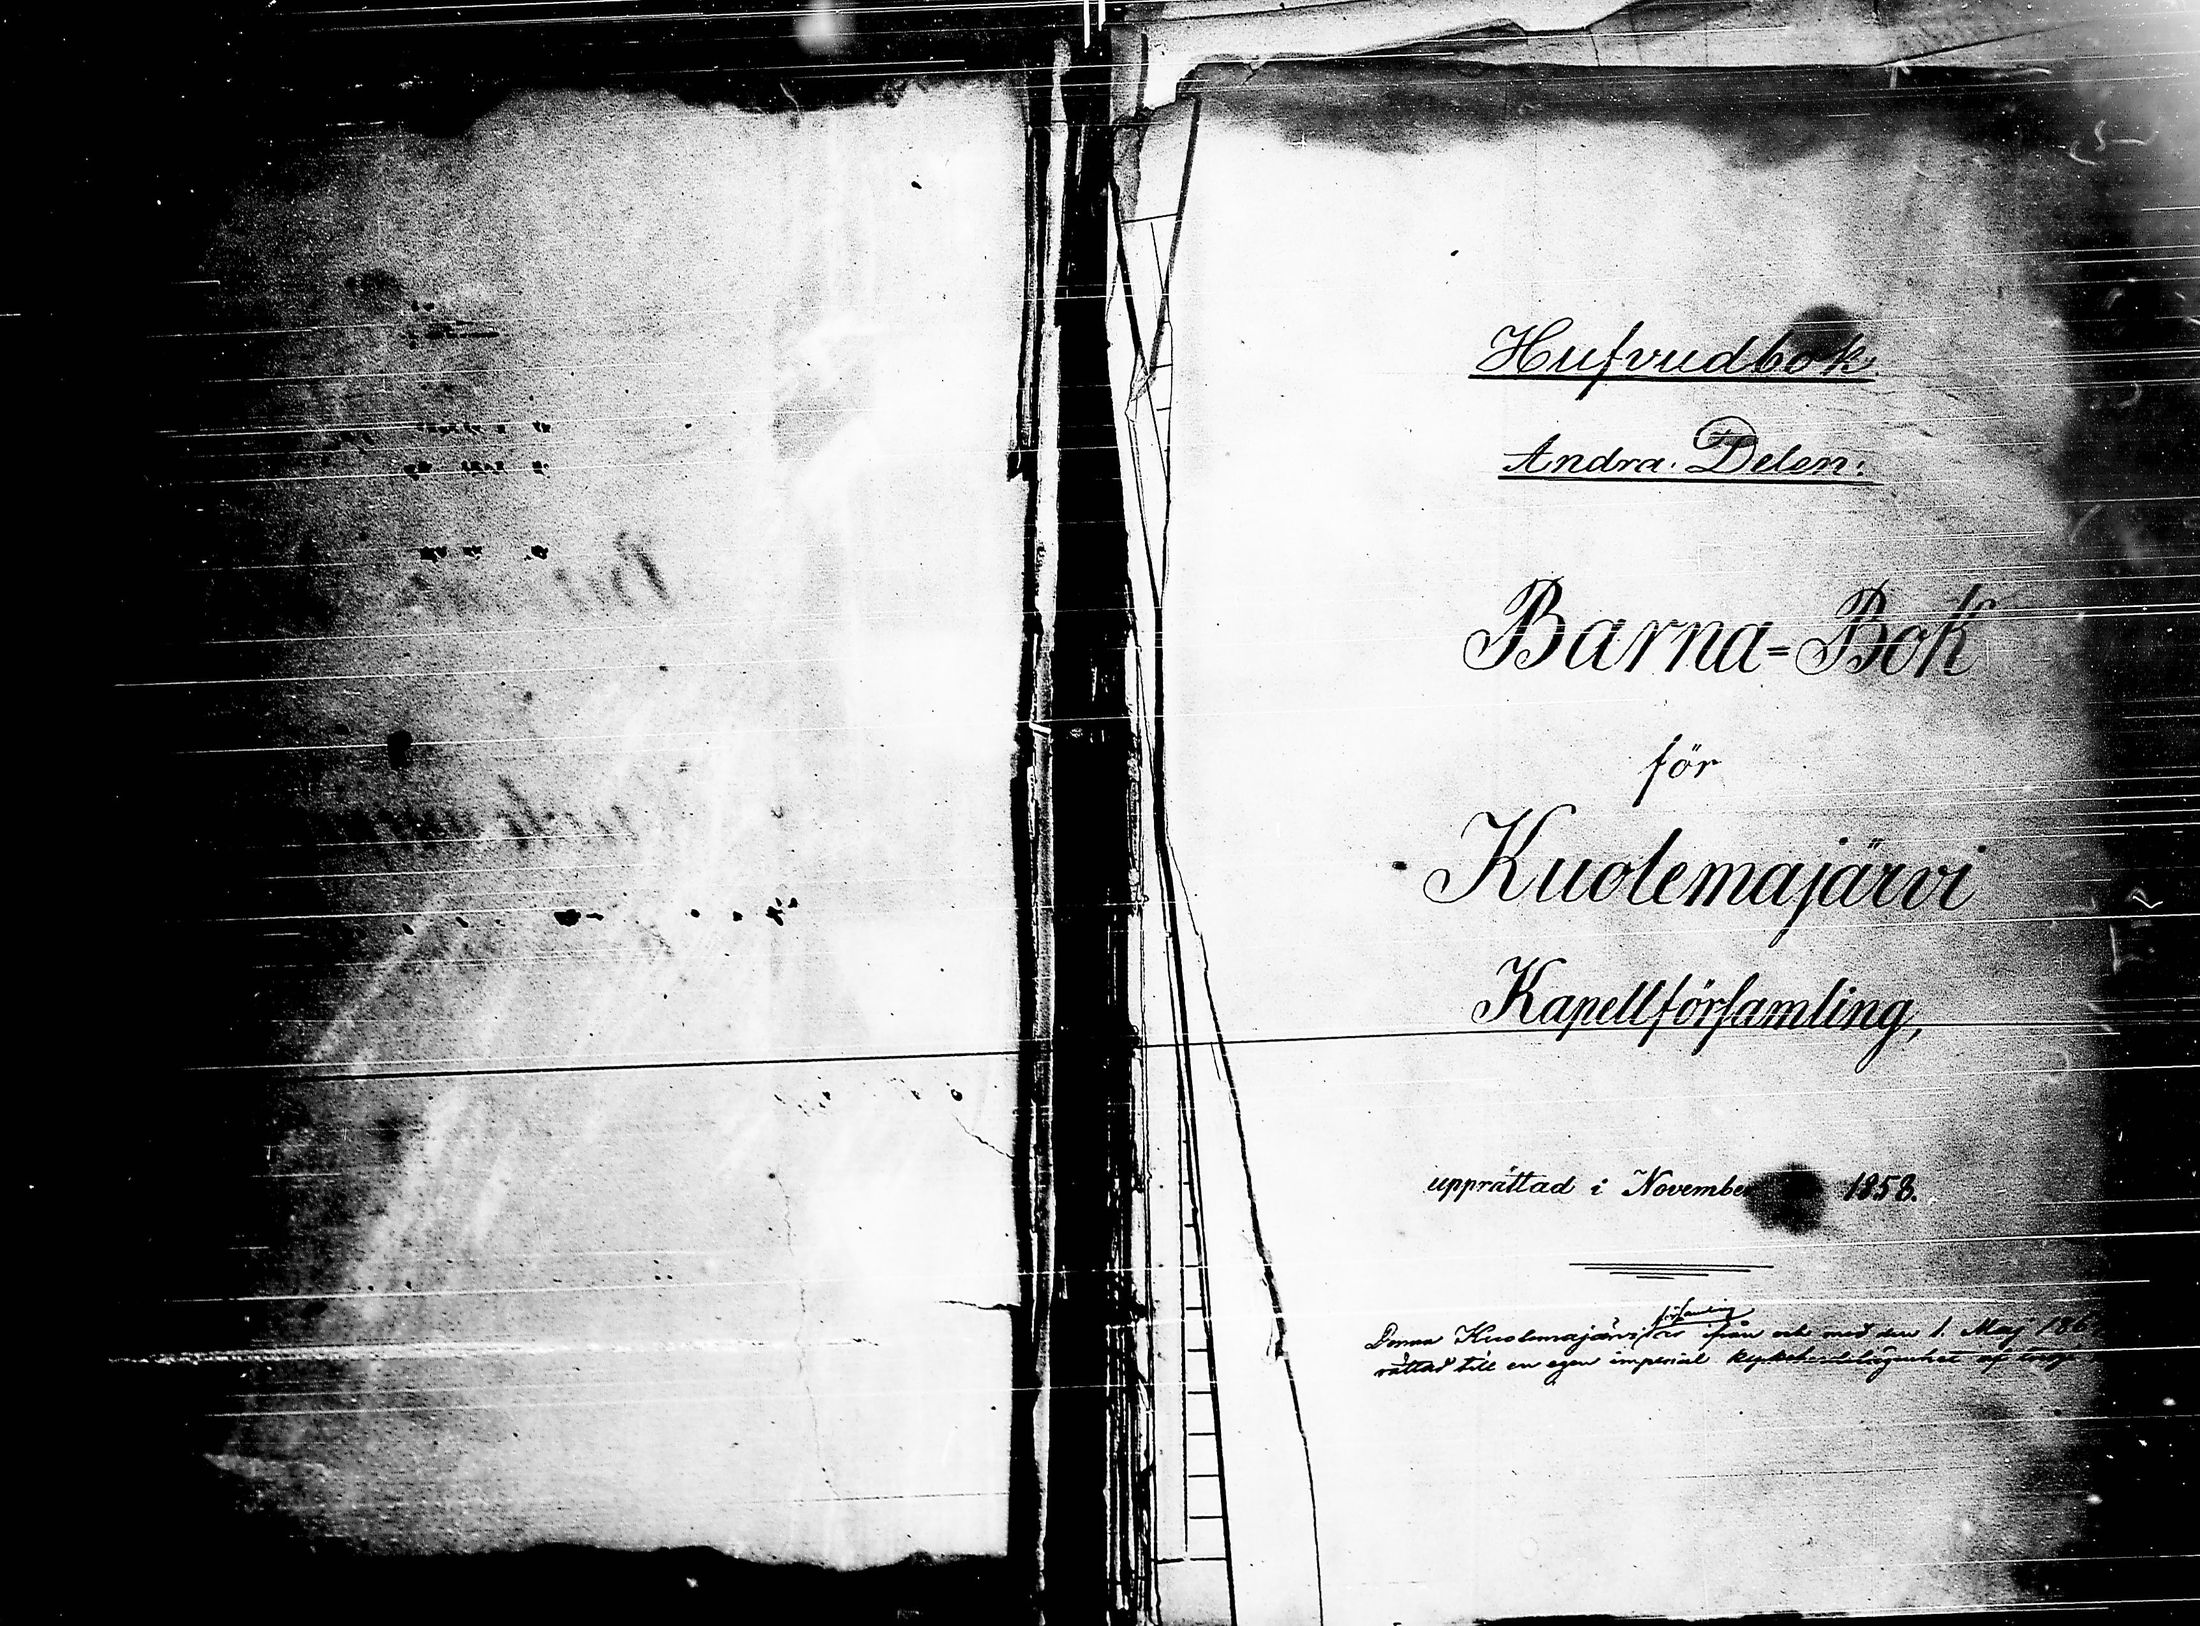 Hufvudbok.
Andra. Delen:
Barna=Bok
för
Kuolemajärvi
Kapellförsamling,
upprättad i November 1858.
församling
Denna Kuolemajärvi är ifrån och med den 1. Maj 186
rättad till en egen imperial kyrkoherdelägenhet af